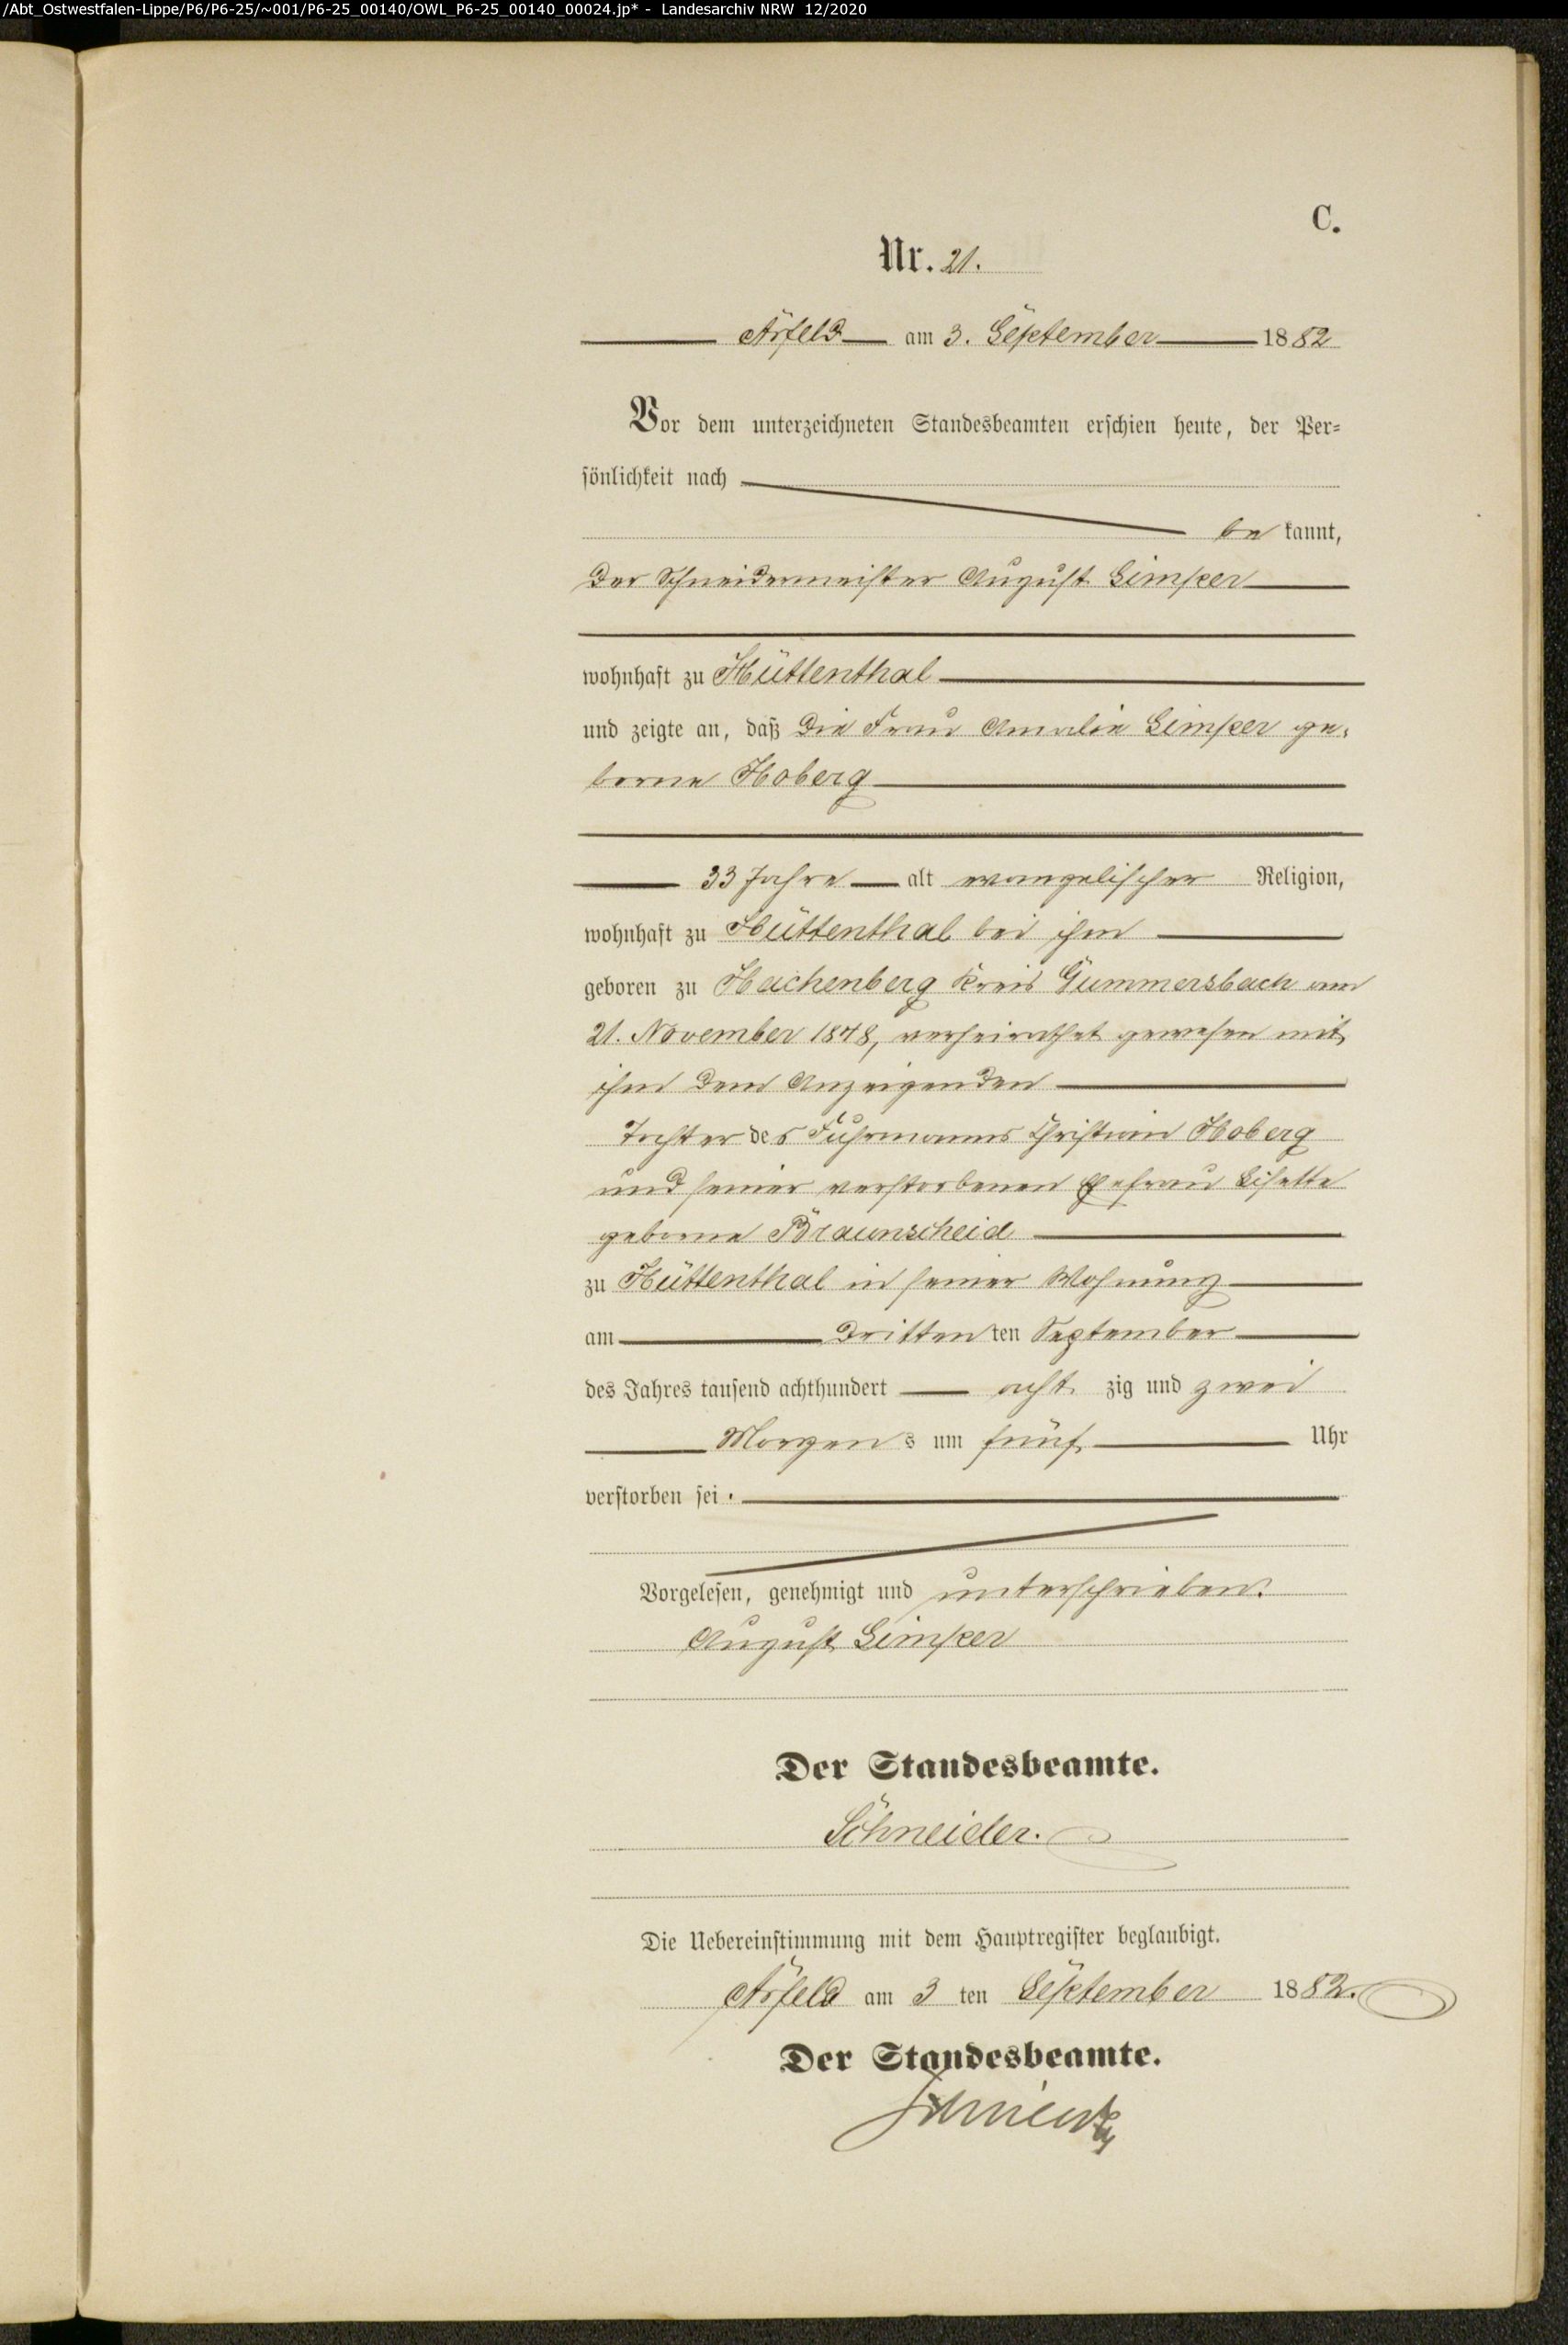 /Abt_Ostwestfalen-Lippe/P6/P6-25/~001/P6-25_00140/OWL_P6-25_00140_00024.jp* - Landesarchiv NRW 12/2020
C.
Nr. 21.
Arfeld am 3. September 1882
Vor dem unterzeichneten Standesbeamten erschien heute, der Per-
sönlichkeit nach
be kannt,
der Schneidermeister August
wohnhaft zu Hüttenthal
und zeigte an, daß die Frau Amalie ge-
borne Hoberg
33 Jahre alt evangelischer Religion,
wohnhaft zu Hüttenthal bei ihm
geboren zu Hachenberg Kreis Gummersbach am
21. November 1848, verheirathet gewesen mit
ihm dem Anzeigenden
Tochter des Fuhrmanns Christian Hoberg
und seiner verstorbenen Ehefrau Lisette
geborne Braunscheid
zu Hüttenthal in seiner Wohnung
am dritten ten September
des Jahres tausend achthundert acht zig und zwei
Morgen s um fünf Uhr
verstorben sei.
Vorgelesen, genehmigt und unterschrieben.
August
Der Standesbeamte.
Schneider.
Die Uebereinstimmung mit dem Hauptregister beglaubigt.
Arfeld am 3 ten September 1882.
Der Standesbeamte.
Schneider